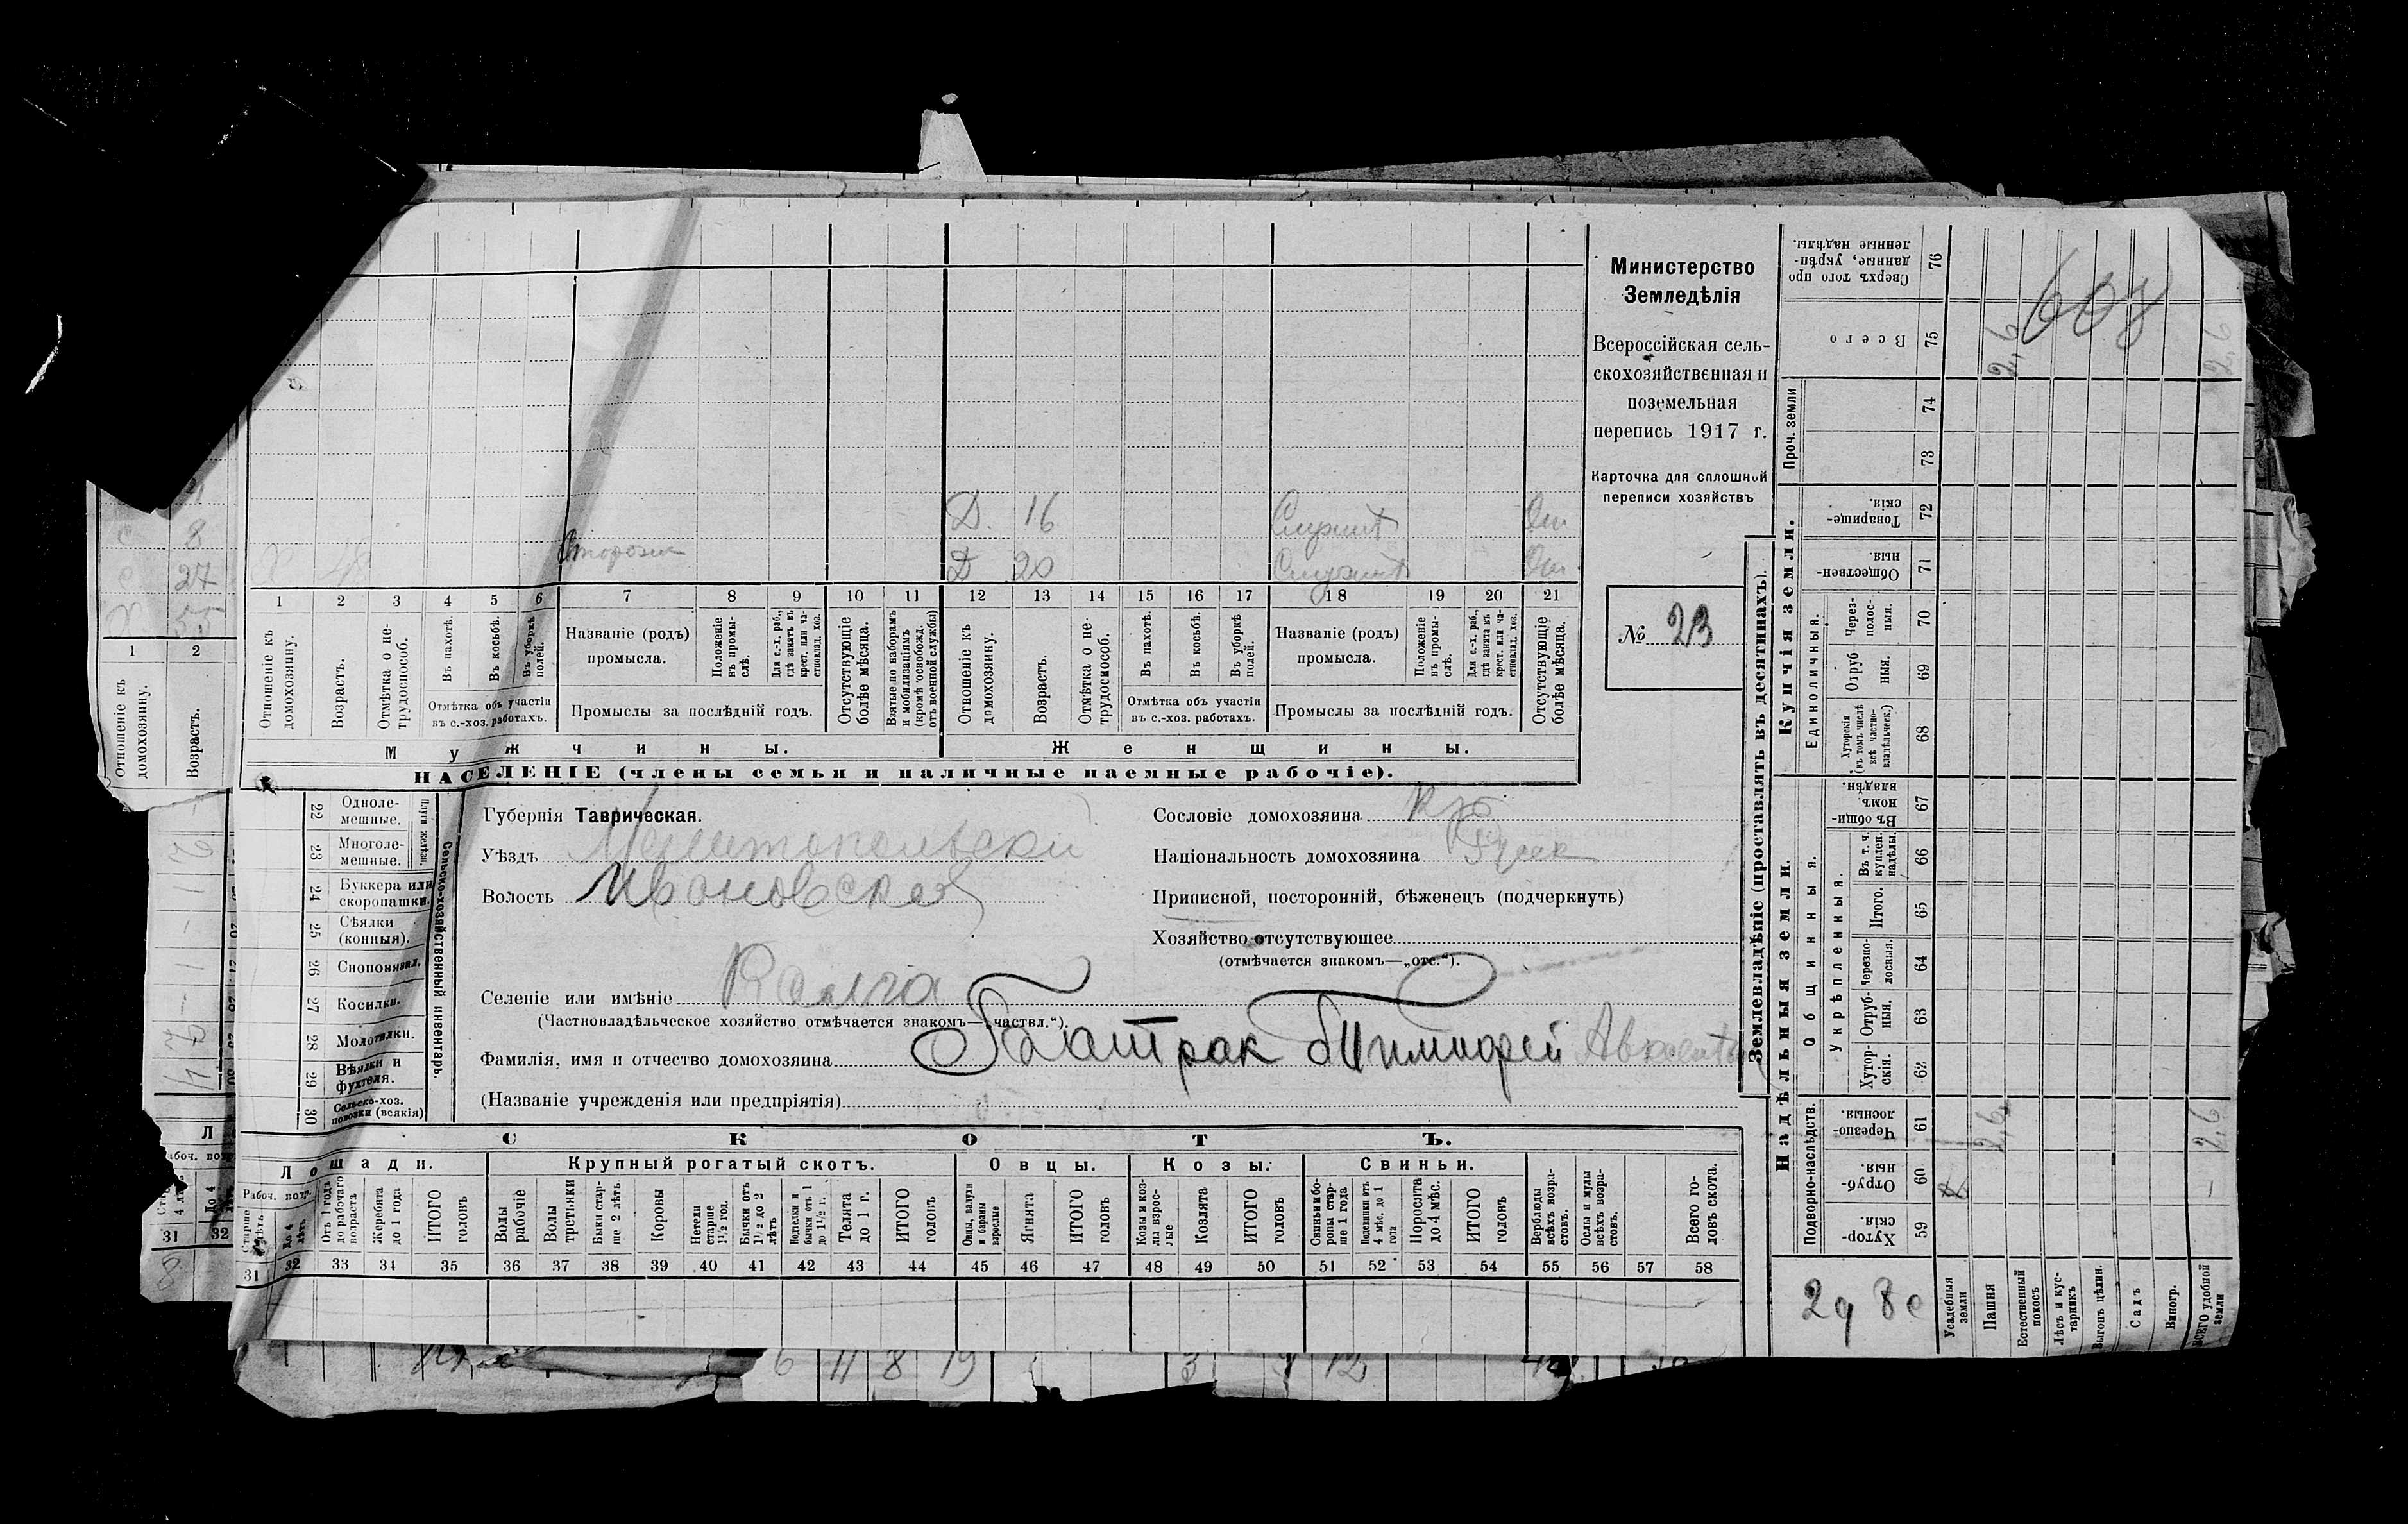 Министерство
Земледѣлія
Всероссійская сель-
скохозяйственная и
поземельная
перепись 1917 г.
Карточка для сплошной
переписи хозяйствъ
№ 23
Д. 16 Служит От
Х 48 Сторожем Д 20 Служит От
1 2 3 4 5 6 7 8 9 10 11 12 13 14 15 16 17 18 19 20 21
Отношеніе къ домохозяину.
Возрастъ.
Отмѣтка о не-трудоспособ.
Въ пахотѣ.
Въ косьбѣ.
Въ уборкѣ полей.
Отмѣтка объ участіи въ с.-хоз. работахъ.
Названіе (родъ) промысла.
Положеніе въ промы-слѣ.
Для с.-х. раб., гдѣ занятъ въ крест. или ча-стновлад. хоз.
Промыслы за послѣдній годъ.
Отсутствующіе болѣе мѣсяца.
Взятые по наборамъ и мобилизаціямъ (кромѣ освобожд. отъ военной службы)
Отношеніе къ домохозяину.
Возрастъ.
Отмѣтка о не-трудоспособ.
Въ пахотѣ.
Въ косьбѣ.
Въ уборкѣ полей.
Отмѣтка объ участіи въ с.-хоз. работахъ.
Названіе (родъ) промысла.
Положеніе въ промы-слѣ.
Для с.-х. раб., гдѣ занята въ крест. или ча-стновлад. хоз.
Промыслы за послѣдній годъ.
Отсутствующіе болѣе мѣсяца.
Мужчины. Женщины.
НАСЕЛЕНІЕ (члены семьи и наличные наемные рабочіе).
Губернія Таврическая.
Уѣздъ Мелитопольский
Волость Ивановская
Селеніе или имѣніе
(Частновладѣльческое хозяйство отмѣчается знакомъ—„частвл.“).
Фамилія, имя и отчество домохозяина Батрак Тимофей
(Названіе учрежденія или предпріятія)
Сословіе домохозяина кр
Національность домохозяина Русск
Приписной, посторонній, бѣженецъ (подчеркнуть)
Хозяйство отсутствующее
(отмѣчается знакомъ—„отс.“).
Сельско-хозяйственный инвентарь.
Плуги желѣзн.
22 Одноле-мешные.
23 Многоле-мешные.
24 Буккера или скоропашки.
25 Сѣялки (конныя).
26 Сноповязал.
27 Косилки.
28 Молотилки.
29 Вѣялки и фухтеля.
30 Сельско-хоз. повозки (всякія)
СКОТЪ.
Лошади. Крупный рогатый скотъ. Овцы. Козы. Свиньи.
Рабоч. возр.
Старше 4 лѣтъ
До 4 лѣтъ
Отъ 1 года до рабочаго возраста
Жеребята до 1 года
ИТОГО головъ
Волы рабочіе
Волы третьяки
Быки стар-ше 2 лѣтъ
Коровы
Нетели старше 1½ год.
Бычки отъ 1½ до 2 лѣтъ
Телята до 1 г.
ИТОГО головъ
Овцы, валухи и бараны взрослые
Ягнята
ИТОГО головъ
Козы и коз-лы взрос-лые
Козлята
ИТОГО головъ
Свиньи и бо-ровы стар-ше 1 года
Подсвинки отъ 4 мѣс. до 1 года
Поросята до 4 мѣс.
ИТОГО головъ
Верблюды всѣхъ возра-стовъ.
Ослы и мулы всѣхъ возра-стовъ.
Всего го-ловъ скота.
31 32 33 34 35 36 37 38 39 40 41 42 43 44 45 46 47 48 49 50 51 52 53 54 55 56 57 58
Землевладѣніе (проставлять въ десятинахъ).
Надѣльныя земли. Купчія земли. Проч. земли
Подворно-наслѣдств.
Общинныя.
Укрѣпленныя.
Единоличныя.
Хутор-скія. 59
Отруб-ныя. 60
Черезпо-лосныя. 61
Хутор-скія. 62
Отруб-ныя. 63
Черезпо-лосныя. 64
Итого. 65
Въ т. ч. куплен. надѣлы. 66
Въ общи-номъ владѣн. 67
Хуторскія (въ томъ числѣ всѣ частно-владѣльческ.) 68
Отруб-ныя. 69
Через-полос-ныя. 70
Обществен-ныя. 71
Товарище-скія. 72
73
74
Всего 75
Сверхъ того про-данные, укрѣп-ленные надѣлы. 76
Усадебныя земли
Пашня 2,6 2,6
Естественный покосъ
Лѣсъ и кус-тарникъ
Выгонъ цѣлин.
Садъ
Виногр.
Всего удобной земли 2,6 2,6
8
27
1 2
Отношеніе къ домохозяину.
Возрастъ.
31 32
6 11 8 19